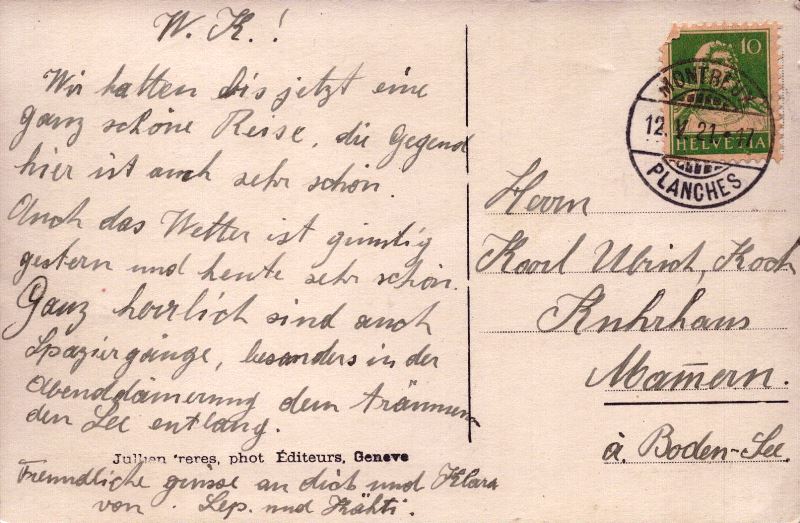 W. K.!
Wir hatten bis jetzt eine
ganz schöne Reise, die Gegend
hier ist auch sehr schön.
Auch das Wetter ist günstig
gestern und heute sehr schön.
Ganz herrlich sind auch
Spaziergänge, besonders in der
Abenddämerung dem träumen
den See entlang.
Jullien freres, phot Éditeurs, Geneve
Freundliche grüsse an dich und Klara
von Sep. und Käthi.
10
HELVETIA
MONTREUX
12.V.21.17
PLANCHES
Herrn
Karl Ulrich, Koch
Kuhrhaus
Mam̅ern.
à. Boden-See.